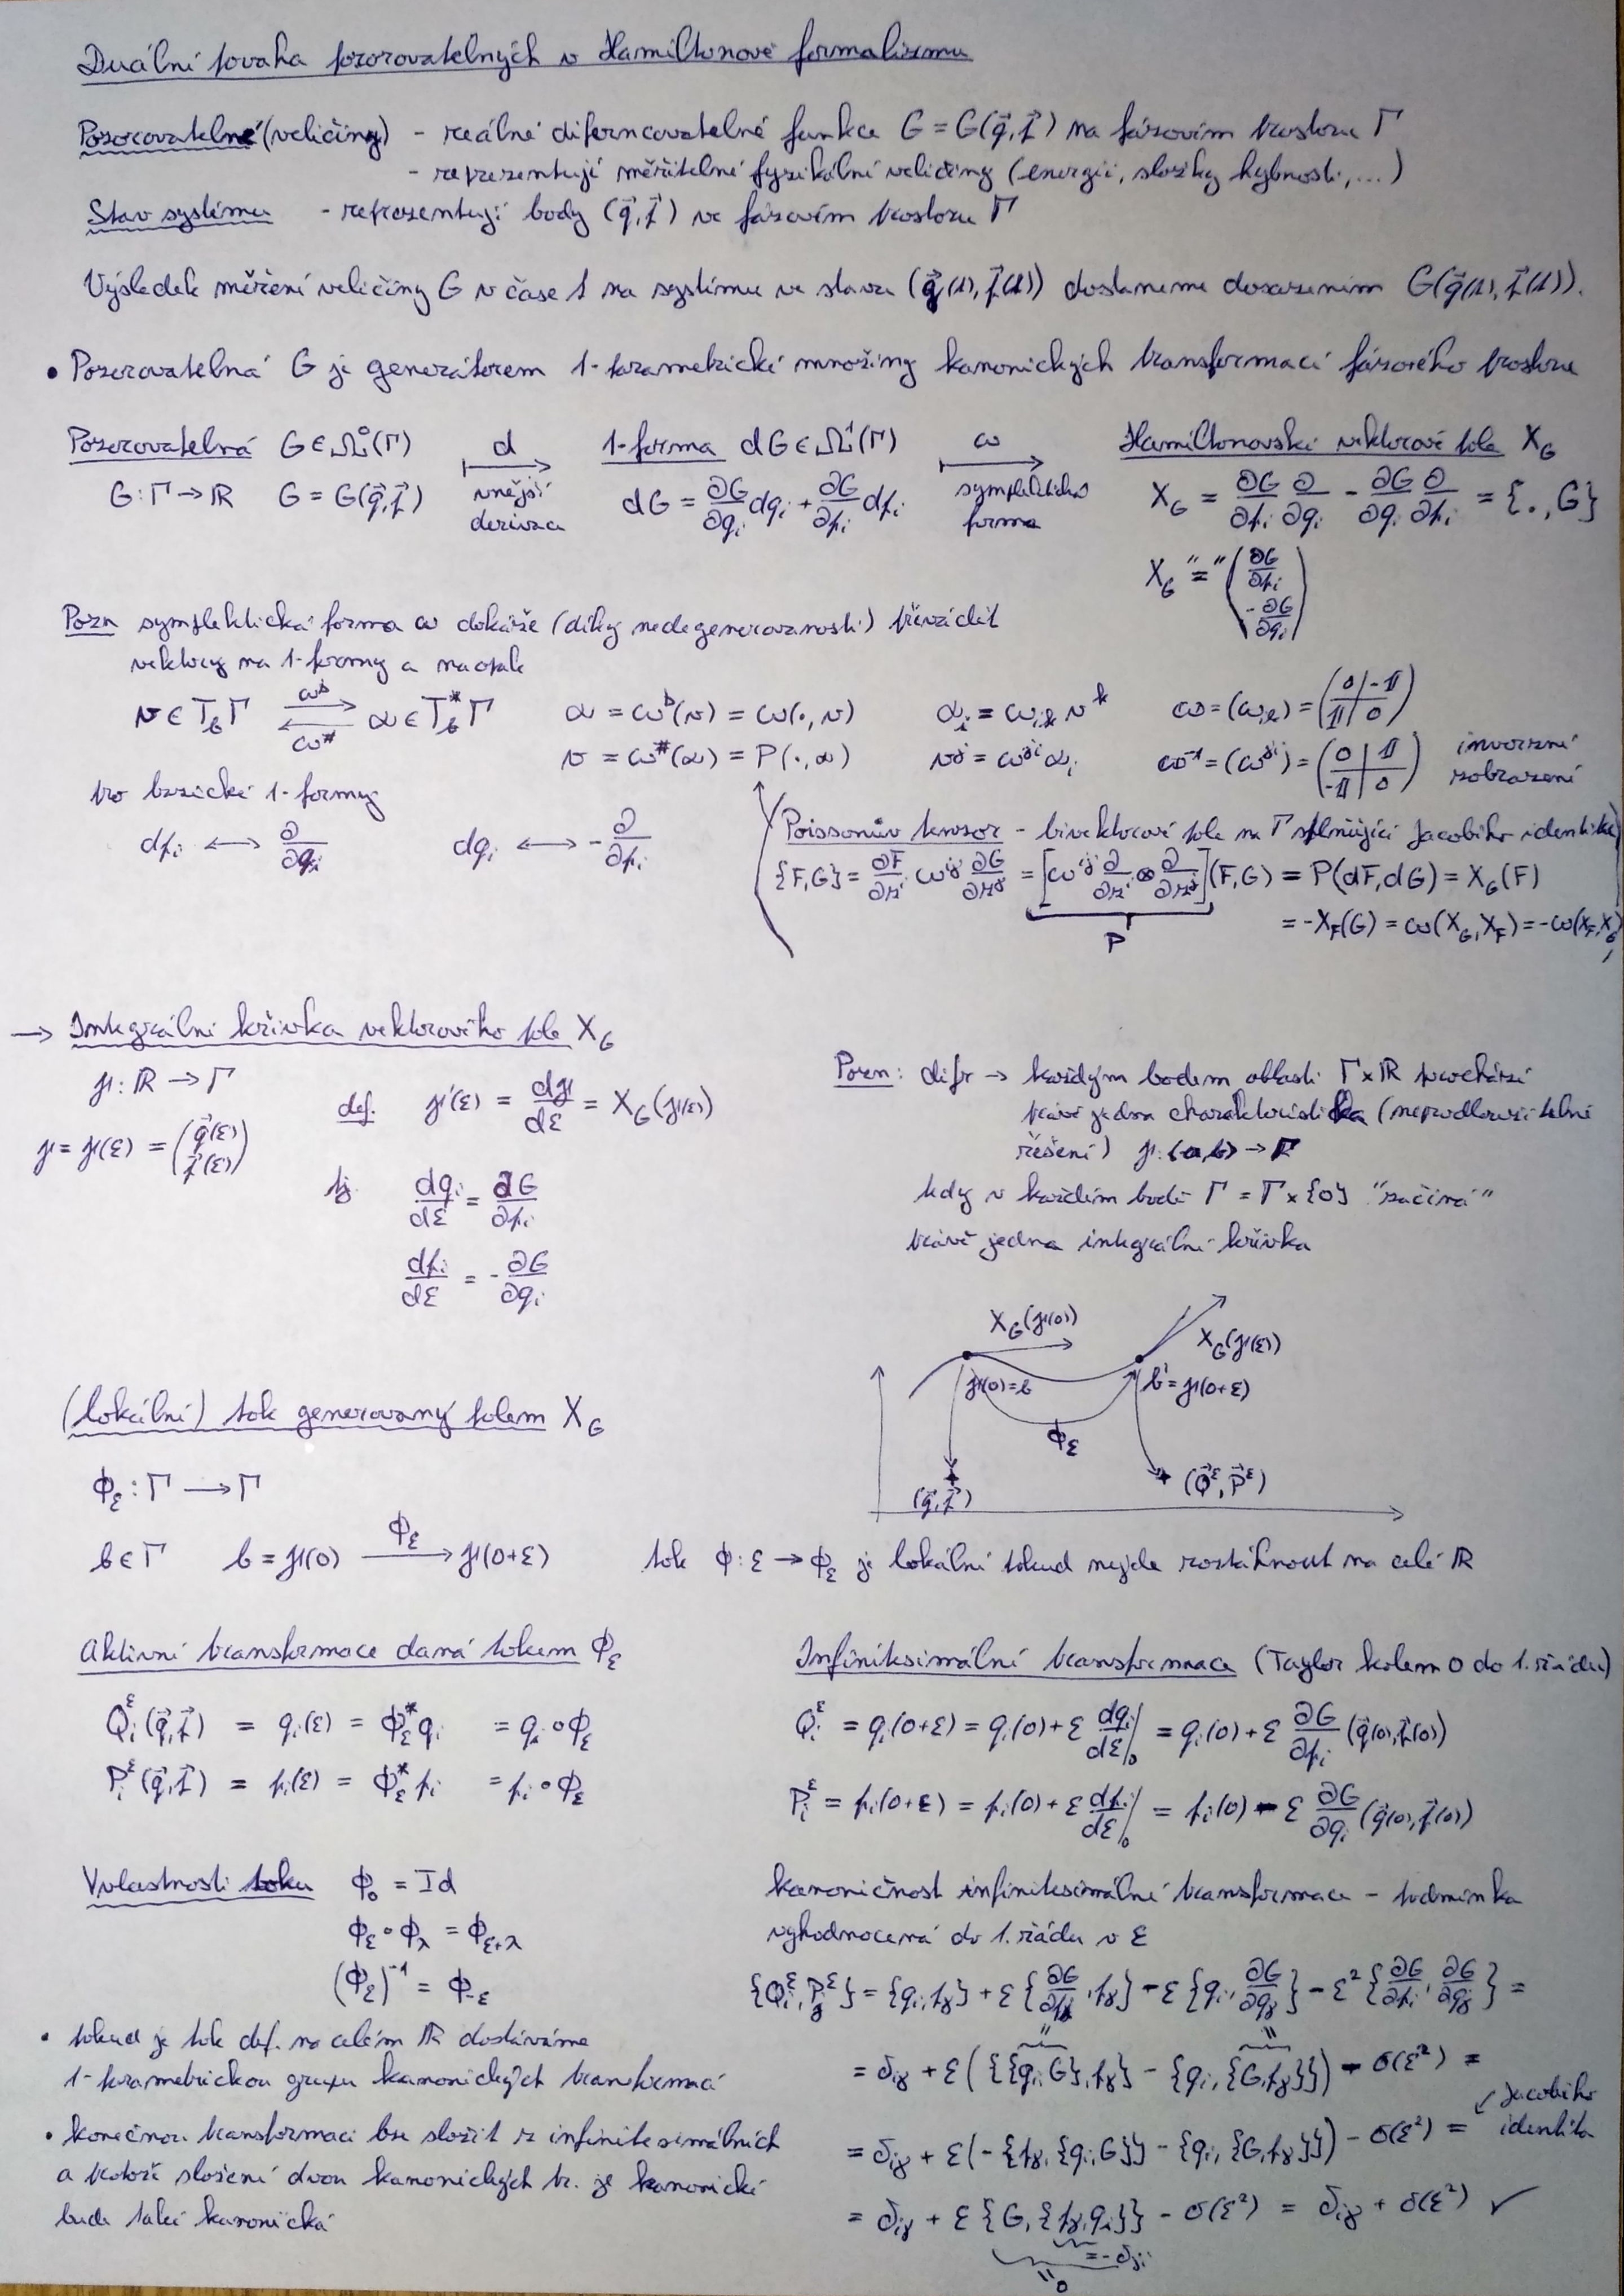 Duální povaha pozorovatelných v Hamiltonově formalizmu
Pozorovatelné (veličiny) - reálné diferncovatelné funkce G = G(q⃗,p⃗) na fázovém prostoru Γ
- reprezentují měřitelné fyzikální veličiny (energii, složky hybnosti,...)
Stav systému - reprezentují body (q⃗,p⃗) ve fázovém prostoru Γ
Výsledek měření veličiny G v čase t na systému ve stavu (q⃗(t), p⃗(t)) dostaneme dosazením G(q⃗(t), p⃗(t)).
• Pozorovatelná G je generátorem 1-parametrické množiny kanonických transformací fázového prostoru
Pozorovatelná G ∈ Ω⁰(Γ) d 1-forma dG ∈ Ω¹(Γ) ω Hamiltonovské vektorové pole X_G
G: Γ → ℝ G = G(q⃗,p⃗) vnější derivace dG = ∂G/∂q_i dq_i + ∂G/∂p_i dp_i symplektická forma X_G = ∂G/∂p_i ∂/∂q_i - ∂G/∂q_i ∂/∂p_i = {., G}
X_G "=" (∂G/∂p_i, -∂G/∂q_i)
Pozn symplektická forma ω dokáže (díky nedegenerovanosti) převádět
vektory na 1-formy a naopak
v ∈ T_bΓ ω^♭ ⇄ ω^# α ∈ T*_bΓ α = ω^♭(v) = ω(·, v) α_i = ω_ik v^k ω = (ω_ik) = (0 | -𝟙 / 𝟙 | 0)
v = ω^#(α) = P(·, α) v^j = ω^ji α_i ω⁻¹ = (ω^ji) = (0 | 𝟙 / -𝟙 | 0) inverzní zobrazení
pro bazické 1-formy
dp_i ⟷ ∂/∂q_i dq_i ⟷ -∂/∂p_i
Poissonův tenzor - bivektorové pole na Γ splňující Jacobiho identitu
{F,G} = ∂F/∂z^i ω^ij ∂G/∂z^j = [ω^ij ∂/∂z^i ⊗ ∂/∂z^j](F,G) = P(dF,dG) = X_G(F)
P
= -X_F(G) = ω(X_G, X_F) = -ω(X_F, X_G)
→ Integrální křivka vektorového pole X_G
γ: ℝ → Γ
γ = γ(ε) = (q⃗(ε), p⃗(ε))
def. γ'(ε) = dγ/dε = X_G(γ(ε))
tj. dq_i/dε = ∂G/∂p_i
dp_i/dε = -∂G/∂q_i
Pozn: difr → každým bodem oblasti Γ×ℝ prochází
právě jedna charakteristika (neprodloužitelné
řešení) γ: (a,b) → Γ
tedy v každém bodě Γ = Γ×{0} "začíná"
právě jedna integrální křivka
X_G(γ(0))
X_G(γ(ε))
γ(0)=b
b' = γ(0+ε)
ϕ_ε
(q⃗,p⃗)
(Q⃗^ε, P⃗^ε)
(lokální) tok generovaný polem X_G
ϕ_ε : Γ ⟶ Γ
b ∈ Γ b = γ(0) ϕ_ε ⟶ γ(0+ε) tok ϕ: ε → ϕ_ε je lokální pokud nejde roztáhnout na celé ℝ
Aktivní transformace daná tokem ϕ_ε
Q_i^ε(q⃗,p⃗) = q_i(ε) = ϕ_ε^* q_i = q_i ∘ ϕ_ε
P_i^ε(q⃗,p⃗) = p_i(ε) = ϕ_ε^* p_i = p_i ∘ ϕ_ε
Infinitesimální transformace (Taylor kolem 0 do 1. řádu)
Q_i^ε = q_i(0+ε) = q_i(0) + ε dq_i/dε|_0 = q_i(0) + ε ∂G/∂p_i (q⃗(0), p⃗(0))
P_i^ε = p_i(0+ε) = p_i(0) + ε dp_i/dε|_0 = p_i(0) - ε ∂G/∂q_i (q⃗(0), p⃗(0))
Vvlastnosti toku ϕ_0 = Id
ϕ_ε ∘ ϕ_λ = ϕ_ε+λ
(ϕ_ε)⁻¹ = ϕ_-ε
• pokud je tok def. na celém ℝ dostáváme
1-parametrickou grupu kanonických transformací
• konečnou transformaci lze složit z infinitesimálních
a protože složení dvou kanonických tr. je kanonické
bude také kanonická
kanoničnost infinitesimální transformace - podmínka
vyhodnocená do 1. řádu v ε
{Q_i^ε, P_j^ε} = {q_i, p_j} + ε {∂G/∂p_i, p_j} - ε {q_i, ∂G/∂q_j} - ε² {∂G/∂p_i, ∂G/∂q_j} =
= δ_ij + ε ({{q_i, G}, p_j} - {q_i, {G, p_j}}) - σ(ε²) =
= δ_ij + ε (-{p_j, {q_i, G}} - {q_i, {G, p_j}}) - σ(ε²) = ↙ Jacobiho identita
= δ_ij + ε {G, {p_j, q_i}} - σ(ε²) = δ_ij + σ(ε²) ✓
= -δ_ji
= 0